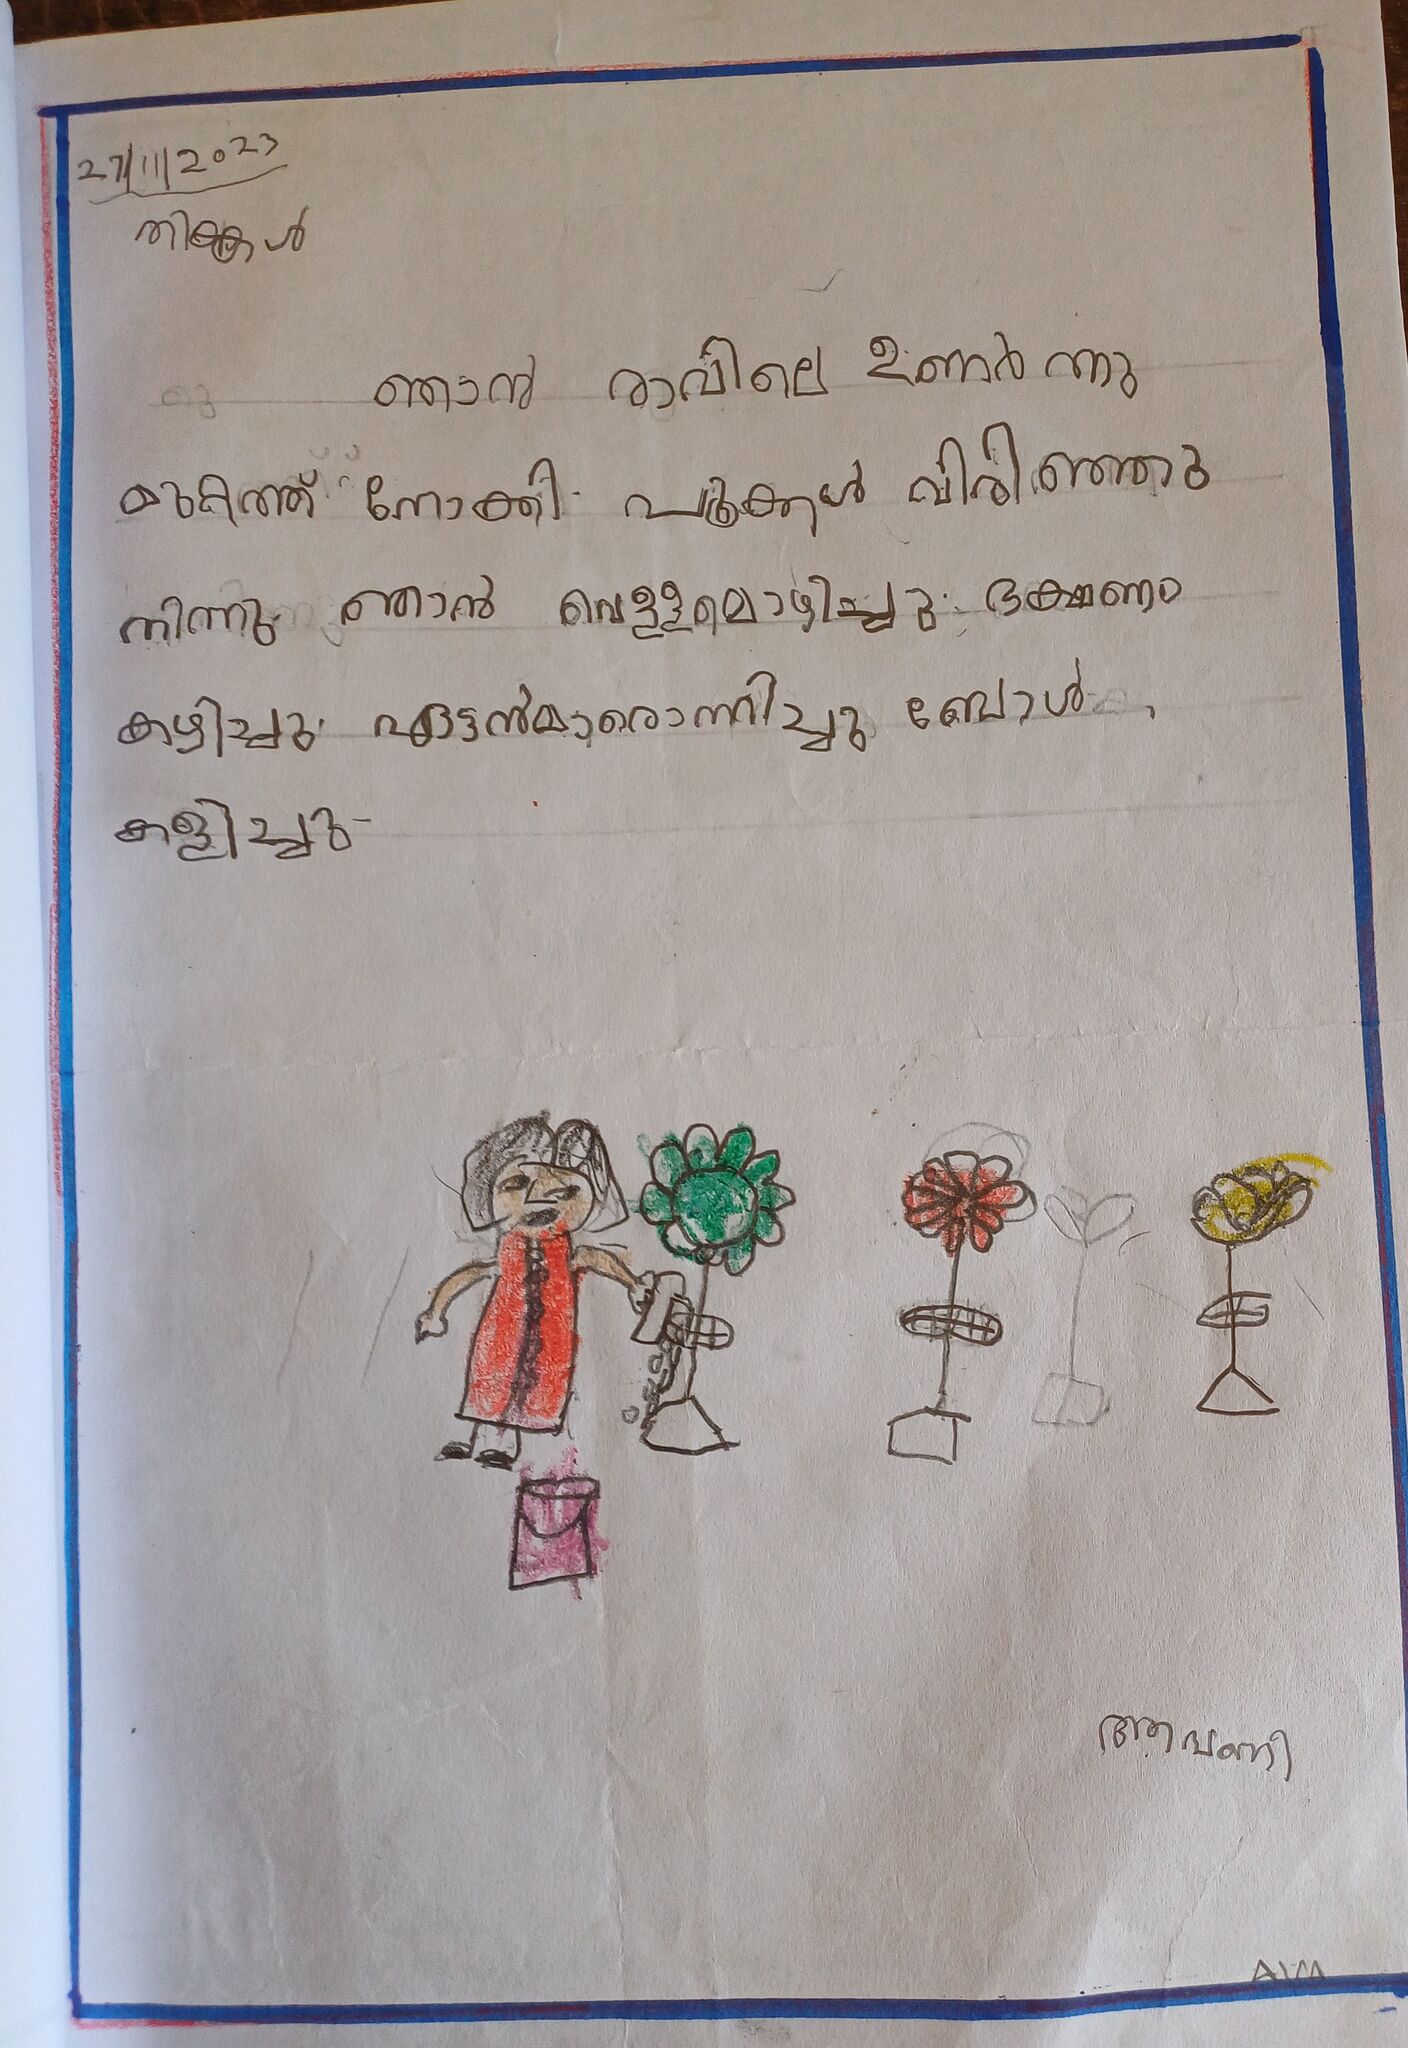 27/11/2023
തിങ്കൾ
ഞാൻ രാവിലെ ഉണർന്നു
മുറ്റത്ത് നോക്കി. പൂക്കൾ വിരിഞ്ഞു
നിന്നു. ഞാൻ വെള്ളമൊഴിച്ചു. ഭക്ഷണം
കഴിച്ചു. ഏട്ടൻമാരൊന്നിച്ചു ബോൾ
കളിച്ചു.
ആവണി